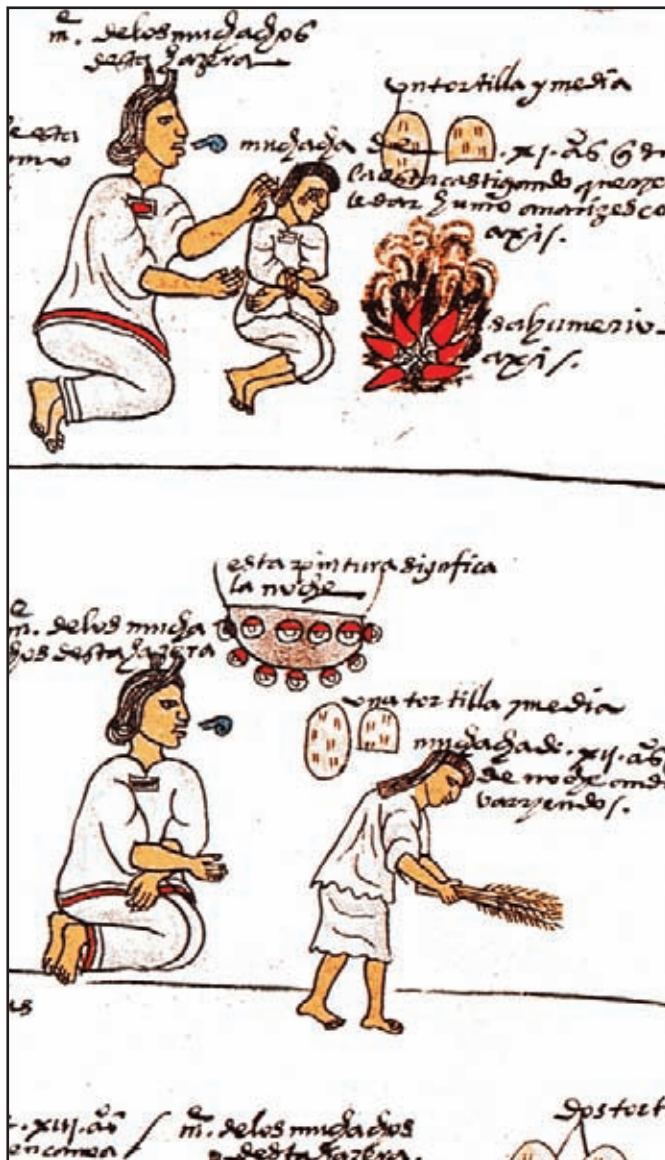 m̃. delos muchachos
desta hazera
un tortilla y media
esta
muchacha de .xj. ãs q̃
la esta castigando
le dar humo a narizes co
axis.
sahumerio
axis.
esta pintura significa
la noche
m̃. delos mucha
chos desta hazera
una tortilla y media
muchacha de .xij. ãs
de noche anda
varriendo.
as
.xiij. ãs
en canoa
m̃. delos muchachos
desta hazera.
dos tort